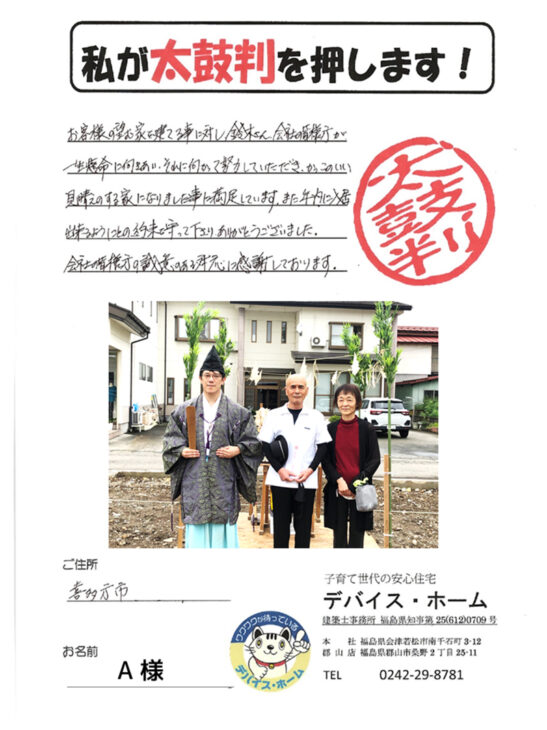 私が太鼓判を押します！
お客様の望む家を建てる事に対し、鈴木さん、会社の皆様方が
一生懸命に向きあい、それに向かって努力していただき、かっこいい
見晴えのする家になりました事に満足しています。また年内に入居
出来るようにとの約束を守って下さりありがとうございました。
会社の皆様方の誠意のある対応に感謝しております。
太鼓判
ご住所
喜多方市
お名前
A 様
ワクワクが待っている
デバイス・ホーム
子育て世代の安心住宅
デバイス・ホーム
建築士事務所 福島県知事第 25(612)0709 号
本　社 福島県会津若松市南千石町 3-12
郡 山 店 福島県郡山市桑野 2 丁目 25-11
TEL 0242-29-8781